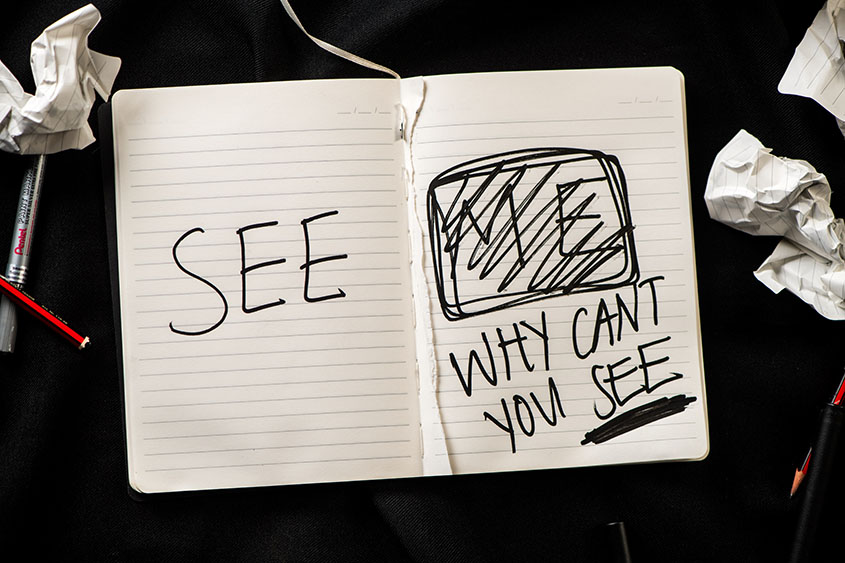 SEE
ME
WHY CANT
YOU SEE
Pentel